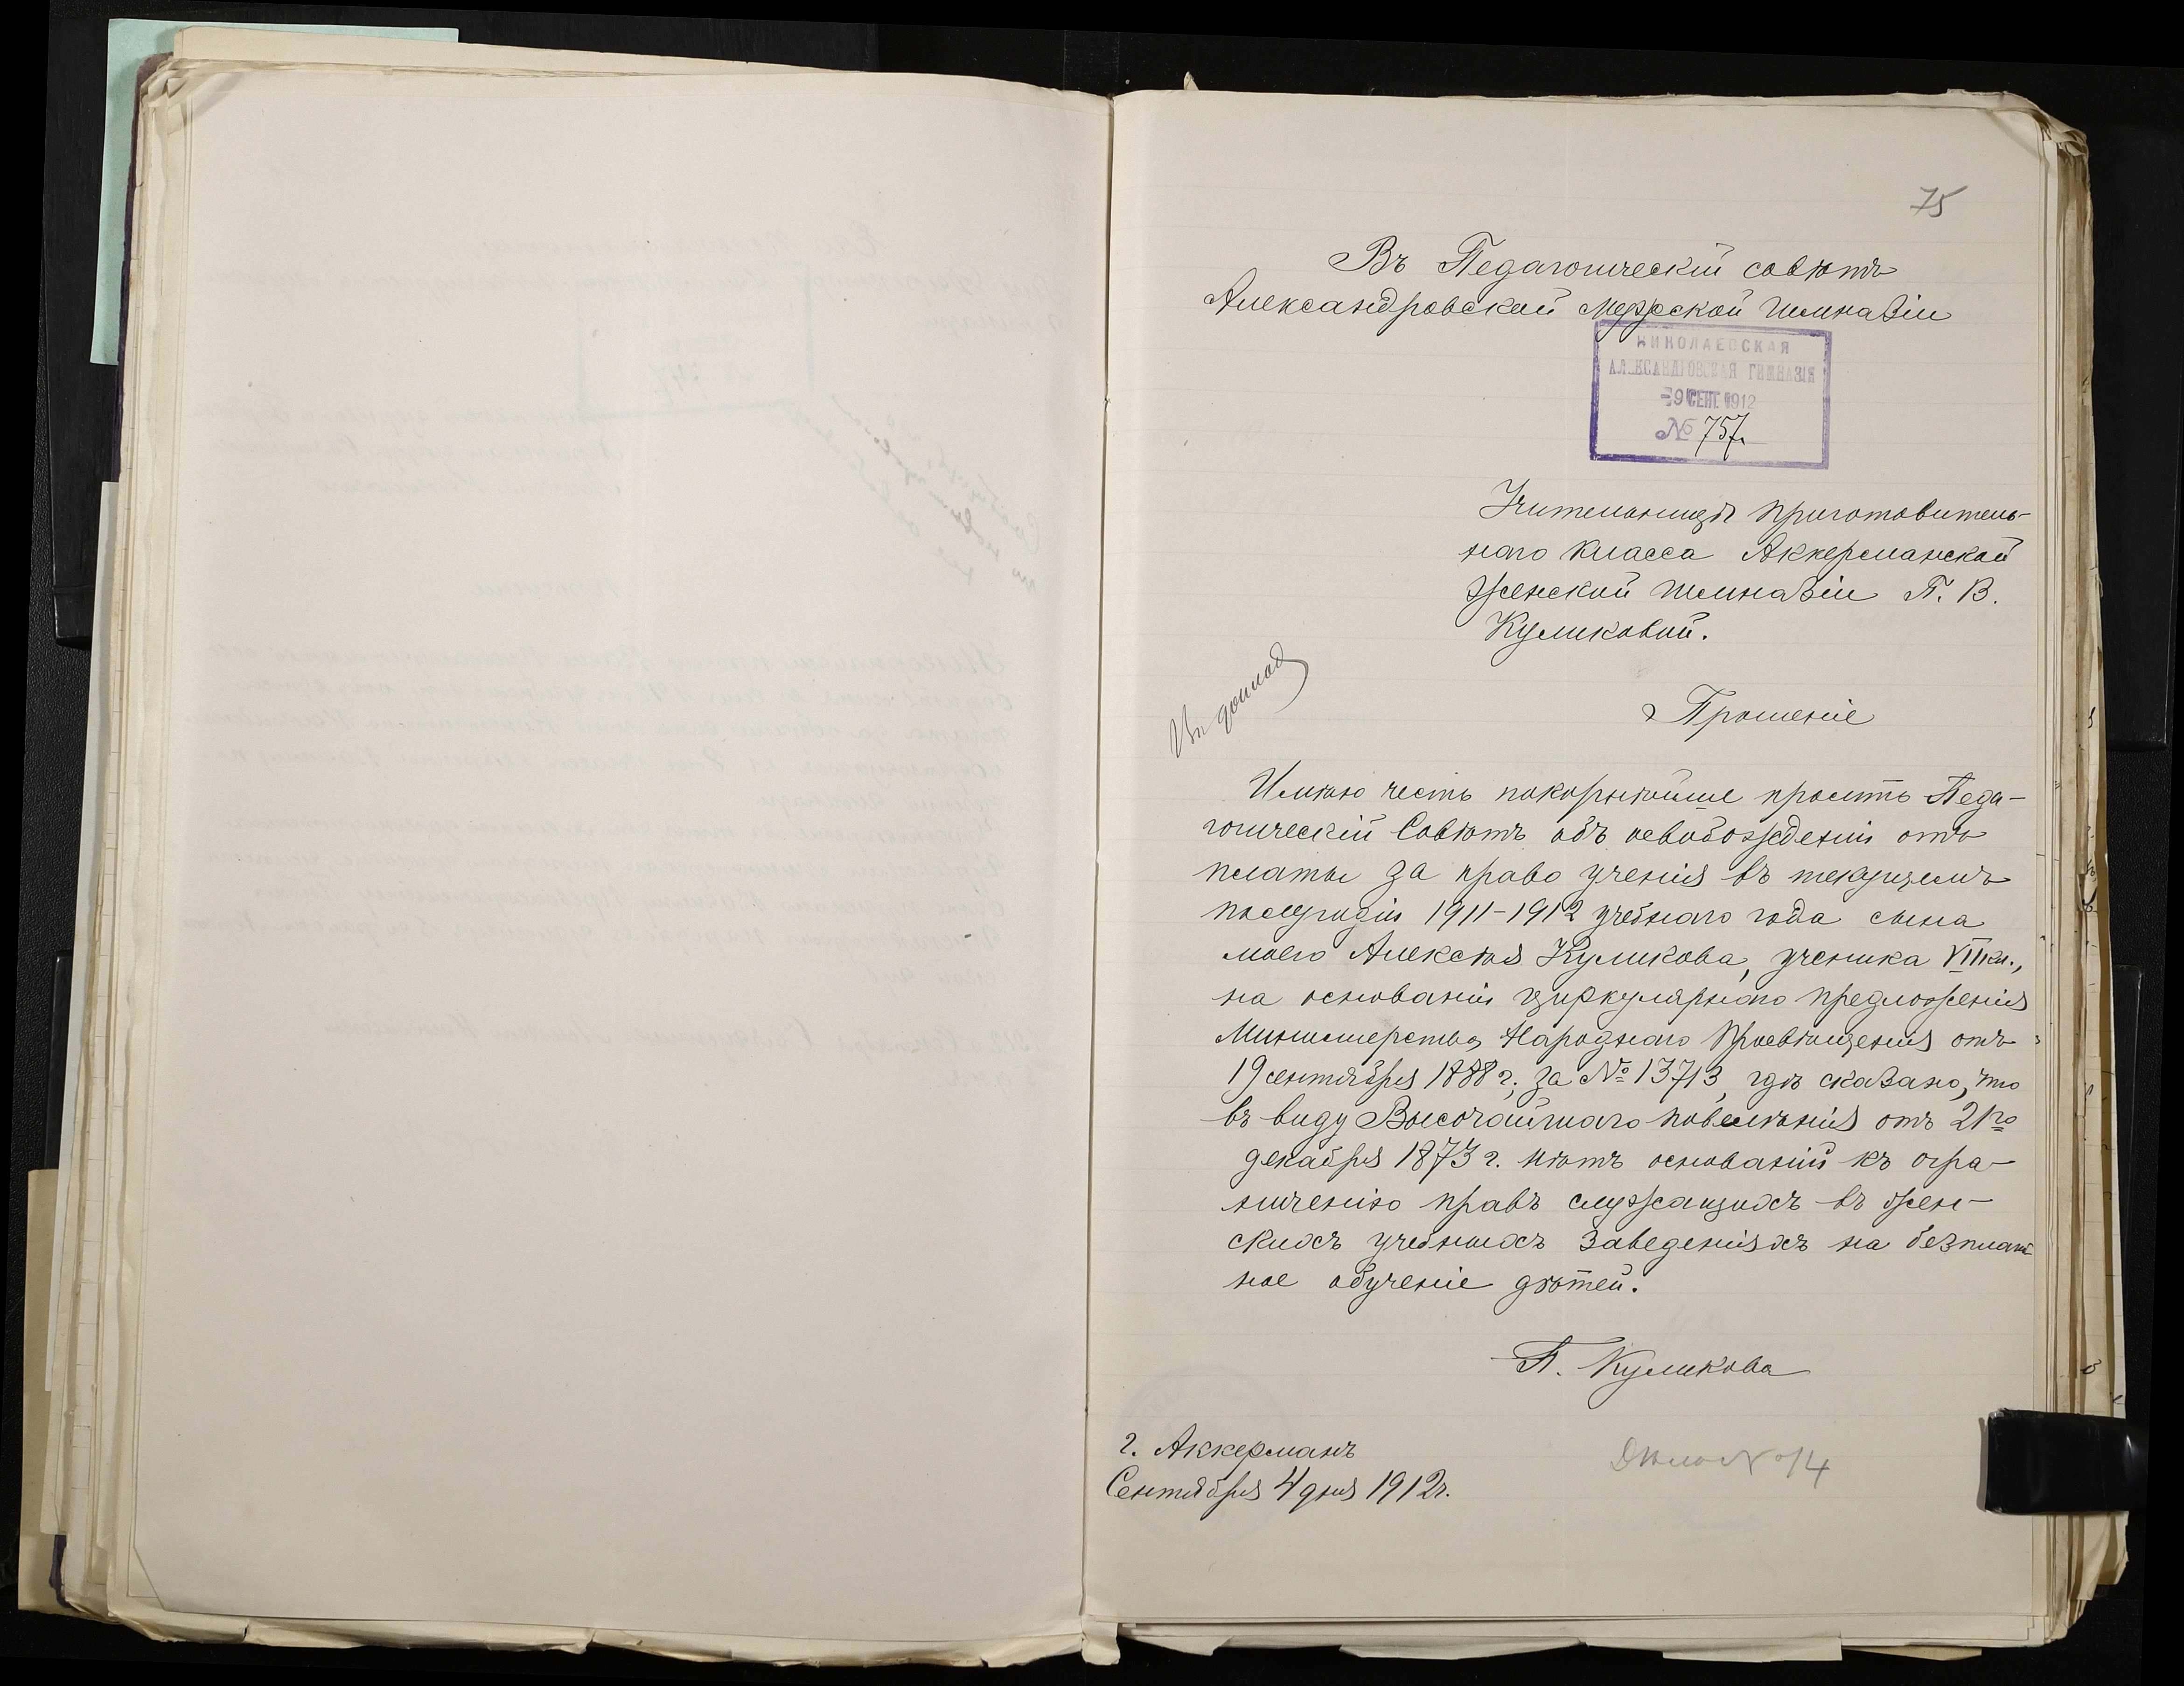 75
Въ Педагогическій совѣтъ
Александровской Мужской гимназіи
НИКОЛАЕВСКАЯ
АЛЕКСАНДРОВСКАЯ ГИМНАЗІЯ
9 СЕНТ. 1912
№ 757.
Учительницы приготовитель-
наго класса Аккерманской
женской гимназіи П. В.
Куликовой.
Въ доклад
Прошеніе
Имѣю честь покорнѣйше просить Педа-
гогическій Совѣтъ объ освобожденіи отъ
платы за право ученія въ текущемъ
полугодіи 1911-1912 учебнаго года сына
моего Алексѣя Куликова, ученика VII кл.,
на основаніи циркулярнаго предложенія
Министерства Народнаго Просвѣщенія отъ
19 сентября 1888 г. за № 13713, гдѣ сказано, что
въ виду Высочайшаго повелѣнія отъ 21го
декабря 1873 г. нѣтъ основаній къ огра-
ниченію правъ служащихъ въ жен-
скихъ учебныхъ заведеніяхъ на безплат
ное обученіе дѣтей.
П. Куликова
г. Аккерманъ
Сентября 4 дня 1912 г.
Дѣло № 14